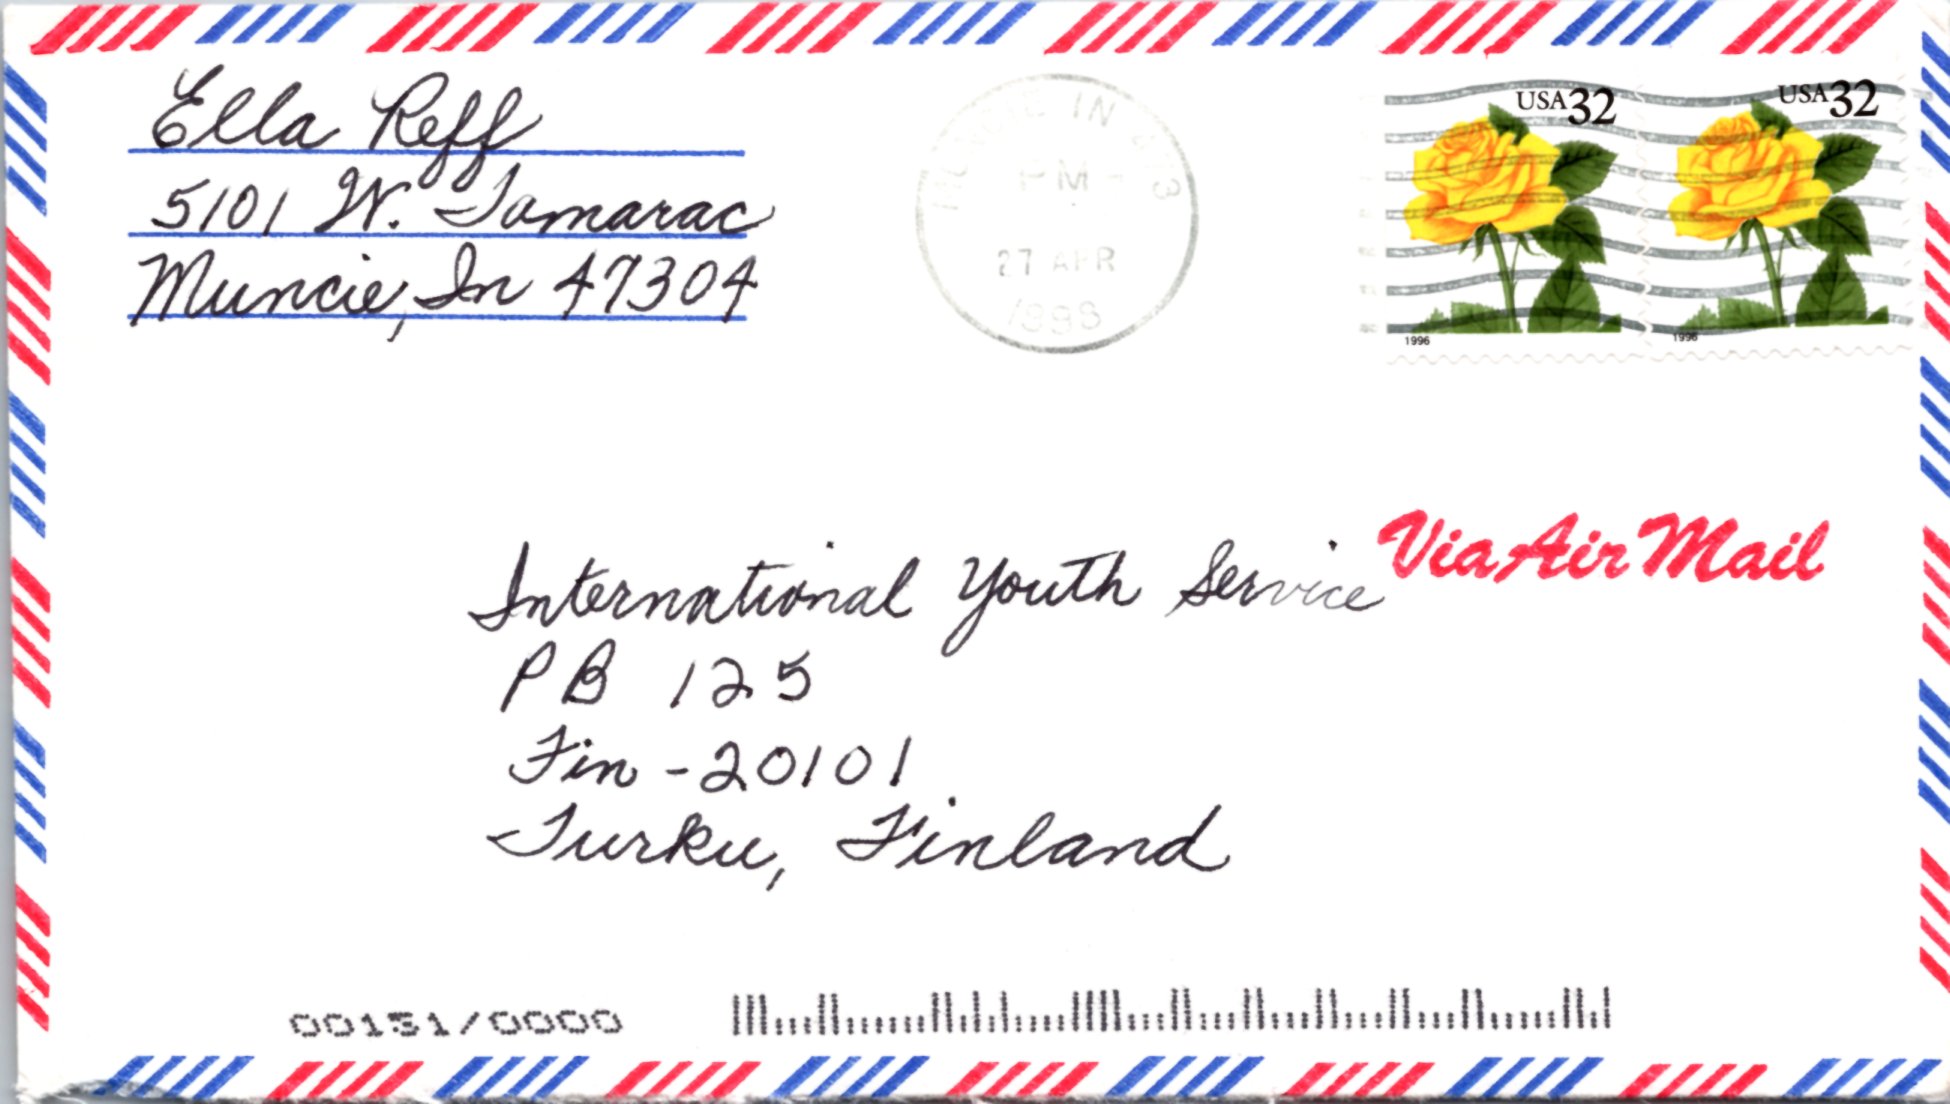 Ella Reff
5101 W. Tamarac
Muncie, In 47304
MUNCIE IN 473
PM
27 APR
1998
USA 32
USA 32
1996
1996
Via Air Mail
International Youth Service
PB 125
Fin - 20101
Turku, Finland
00151/0000